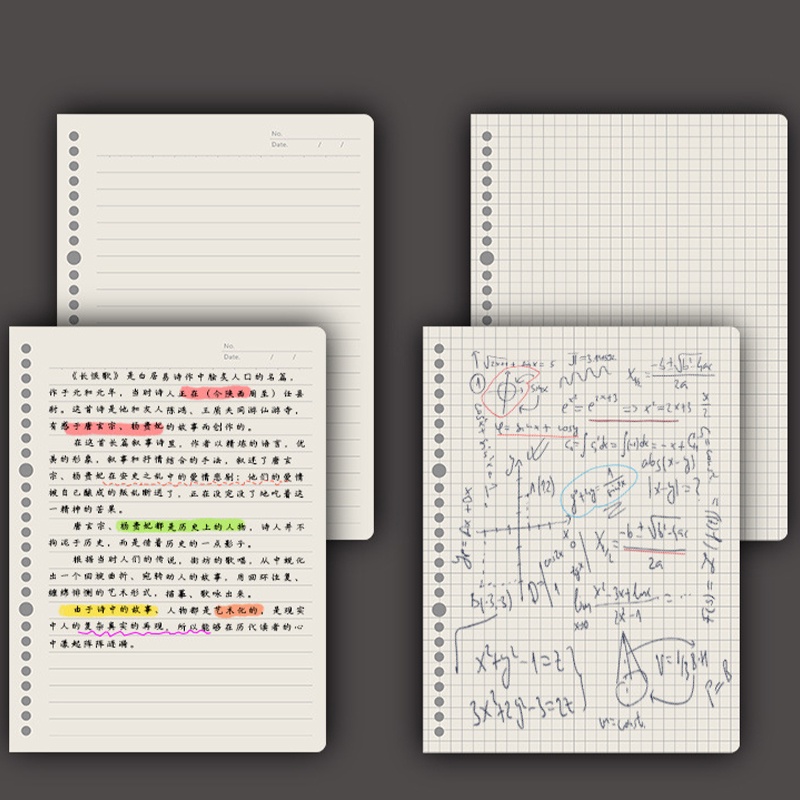 No.
Date. / /
No.
Date. / /
《长恨歌》是白居易诗作中脍炙人口的名篇，
作于元和元年，当时诗人正在（今陕西周至）任县
尉。这首诗是他和友人陈鸿、王质夫同游仙游寺，
有感于唐玄宗、杨贵妃的故事而创作的。
在这首长篇叙事诗里，作者以精炼的语言，优
美的形象，叙事和抒情结合的手法，叙述了唐玄
宗、杨贵妃在安史之乱中的爱情悲剧：他们的爱情
被自己酿成的叛乱断送了，正在没完没了地吃着这
一精神的苦果。
唐玄宗、杨贵妃都是历史上的人物，诗人并不
拘泥于历史，而是借着历史的一点影子，
根据当时人们的传说，街坊的歌唱，从中蜕化
出一个回旋曲折、宛转动人的故事，用回环往复、
缠绵悱恻的艺术形式，描摹、歌咏出来。
由于诗中的故事、人物都是艺术化的，是现实
中人的复杂真实的再现，所以能够在历代读者的心
中漾起阵阵涟漪。
① 
e^x² = e^2x+3 => x² = 2x+3
φ = sin x + cos y
abs(x-y)
|x-y| = ?
A(12)
-b ± √b²-4ac
2a
B(-3;-3)
x²+y²-1=z
3x²+2y²-3=2z
V=1/3 B·H
m=const.